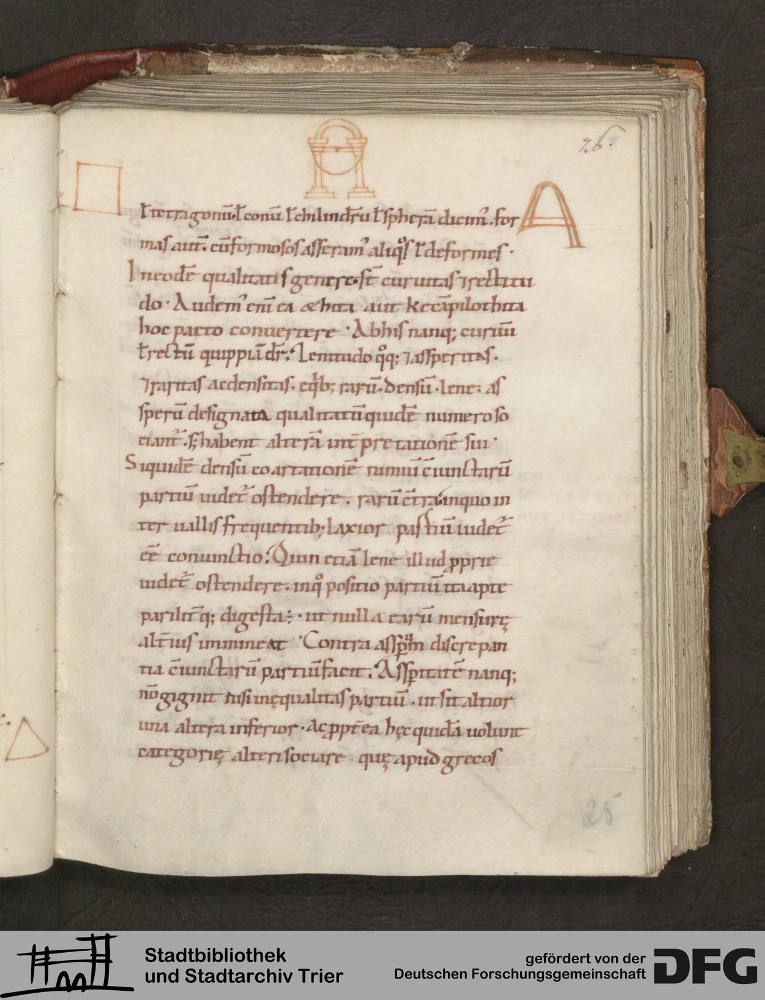 26.
A
ł tetragonū. ł conū ł chilindrū ł spherā dicim᷒. for
mas aut̄. cū formosos asseram᷒ aliqͦs ł deformes.
In eodē qualitatis genere. st̄ curuitas ⁊ rectitu
do. Audem᷒ enī ea
hoc pacto conuertere. Ab his nanq; curuū
ł rectū quippiā dr̄. Lenitudo qͦq; ⁊ assperitas.
⁊ raritas ac densitas. eqͥb; rarū. densū. lene. as
sperū designata qualitatū quidē numero so
ciant᷒. S; habent alterā int̄pretationē sui.
Siquidē densū coartationē nimiū c̄iunctarū
partiū uidet᷒ ostendere. rarū c̄tra inquo in
ter uallis frequentib; laxior partiū uidet᷒
eē coniunctio. Quin etiā lene illud ꝓprie
uidet᷒ ostendere. inqͦ positio partiū ita apte
parilit̄q; digesta. ut nulla earū mensurę
alt̄ius immineat. Contra assꝑum discrepan
tia c̄iunctarū partiū facit. Assꝑitatē nanq;
nō gignit nisi inęqualitas partiū. ut sit altior
una altera inferior. Ac ꝓpt̄ea hęc quidā uolunt
categorię alteri sociare. quę apud grecos
25
Stadtbibliothek
und Stadtarchiv Trier
gefördert von der
Deutschen Forschungsgemeinschaft
DFG